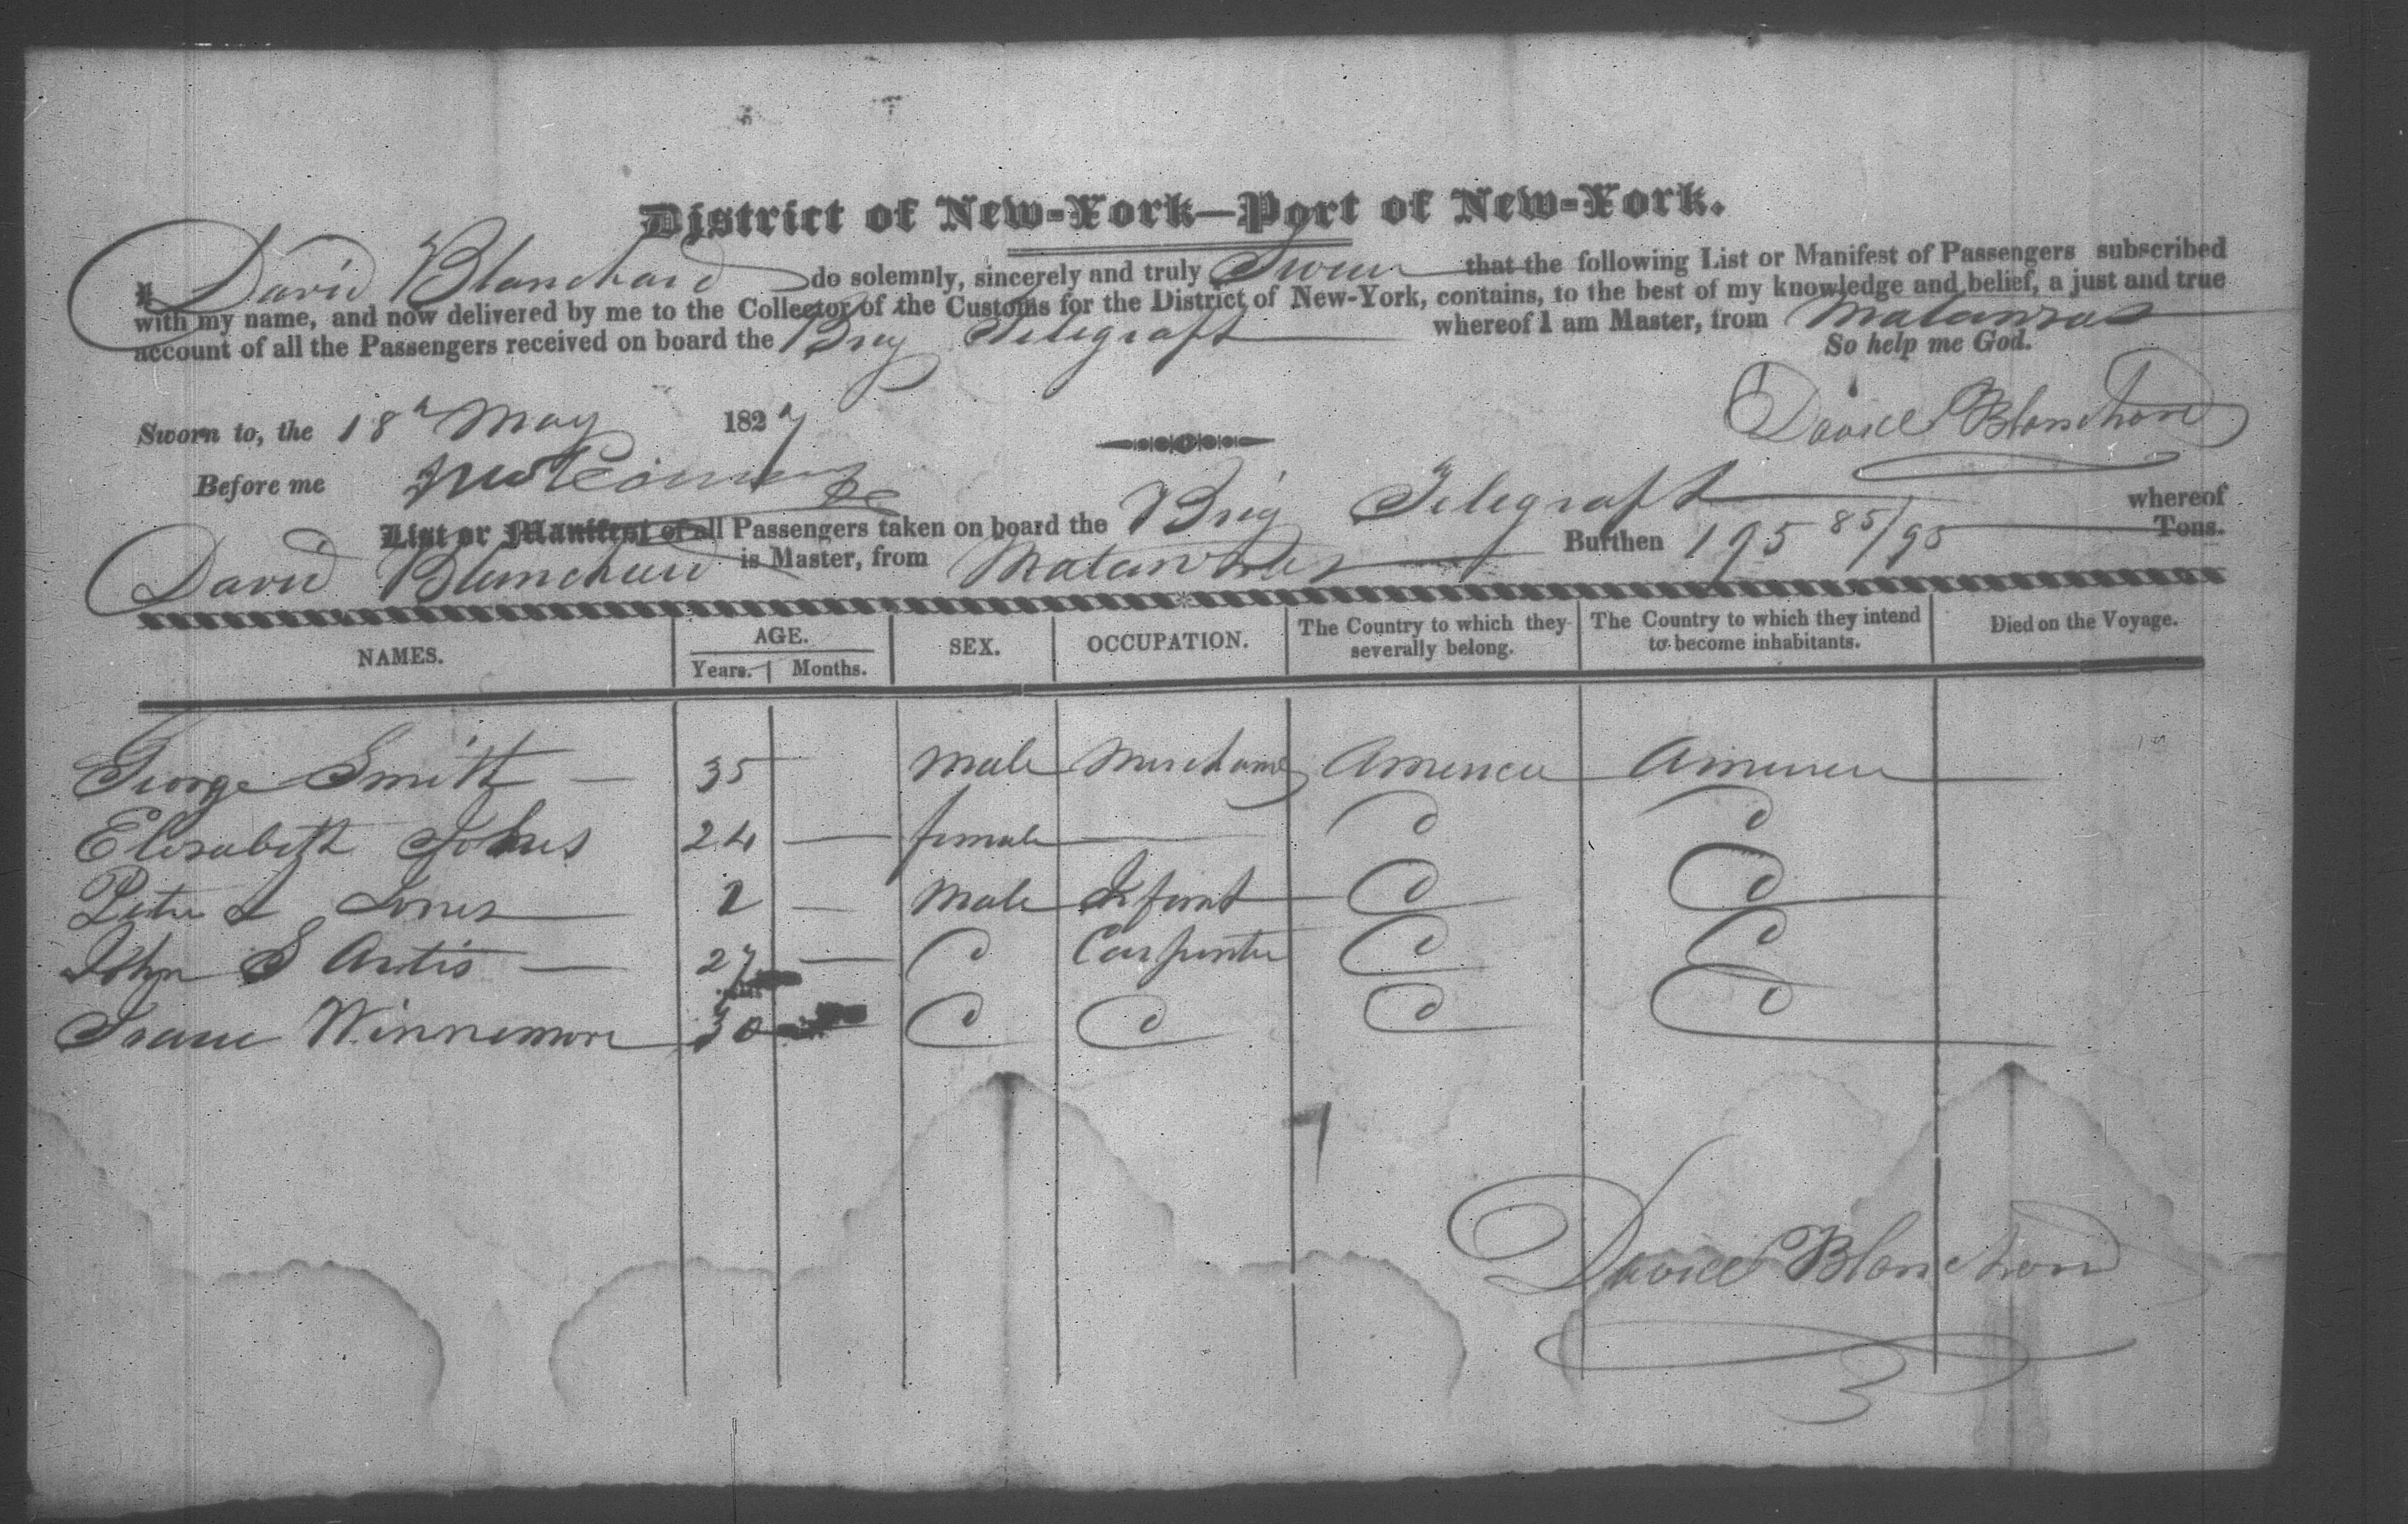 District of New-York—Port of New-York.
I David Blanchard do solemnly, sincerely and truly Swear that the following List or Manifest of Passengers subscribed
with my name, and now delivered by me to the Collector of the Customs for the District of New-York, contains, to the best of my knowledge and belief, a just and true
account of all the Passengers received on board the Brig Telegraft whereof I am Master, from Matanzas
So help me God.
David Blanchard
Sworn to, the 18th May 1827
Before me
List or Manifest of all Passengers taken on board the Brig Telegraft whereof
David Blanchard is Master, from Matanzas Burthen 195 85/95 Tons.
NAMES. AGE. Years. Months. SEX. OCCUPATION. The Country to which they severally belong. The Country to which they intend to become inhabitants. Died on the Voyage.
George Smith — 35 Male Merchant America America
Elizabeth 24 — female —
Peter L Jones 2 — Male Infant
John S Artis — 27 — Carpenter
Isaac Winnemore 30
David Blanchard